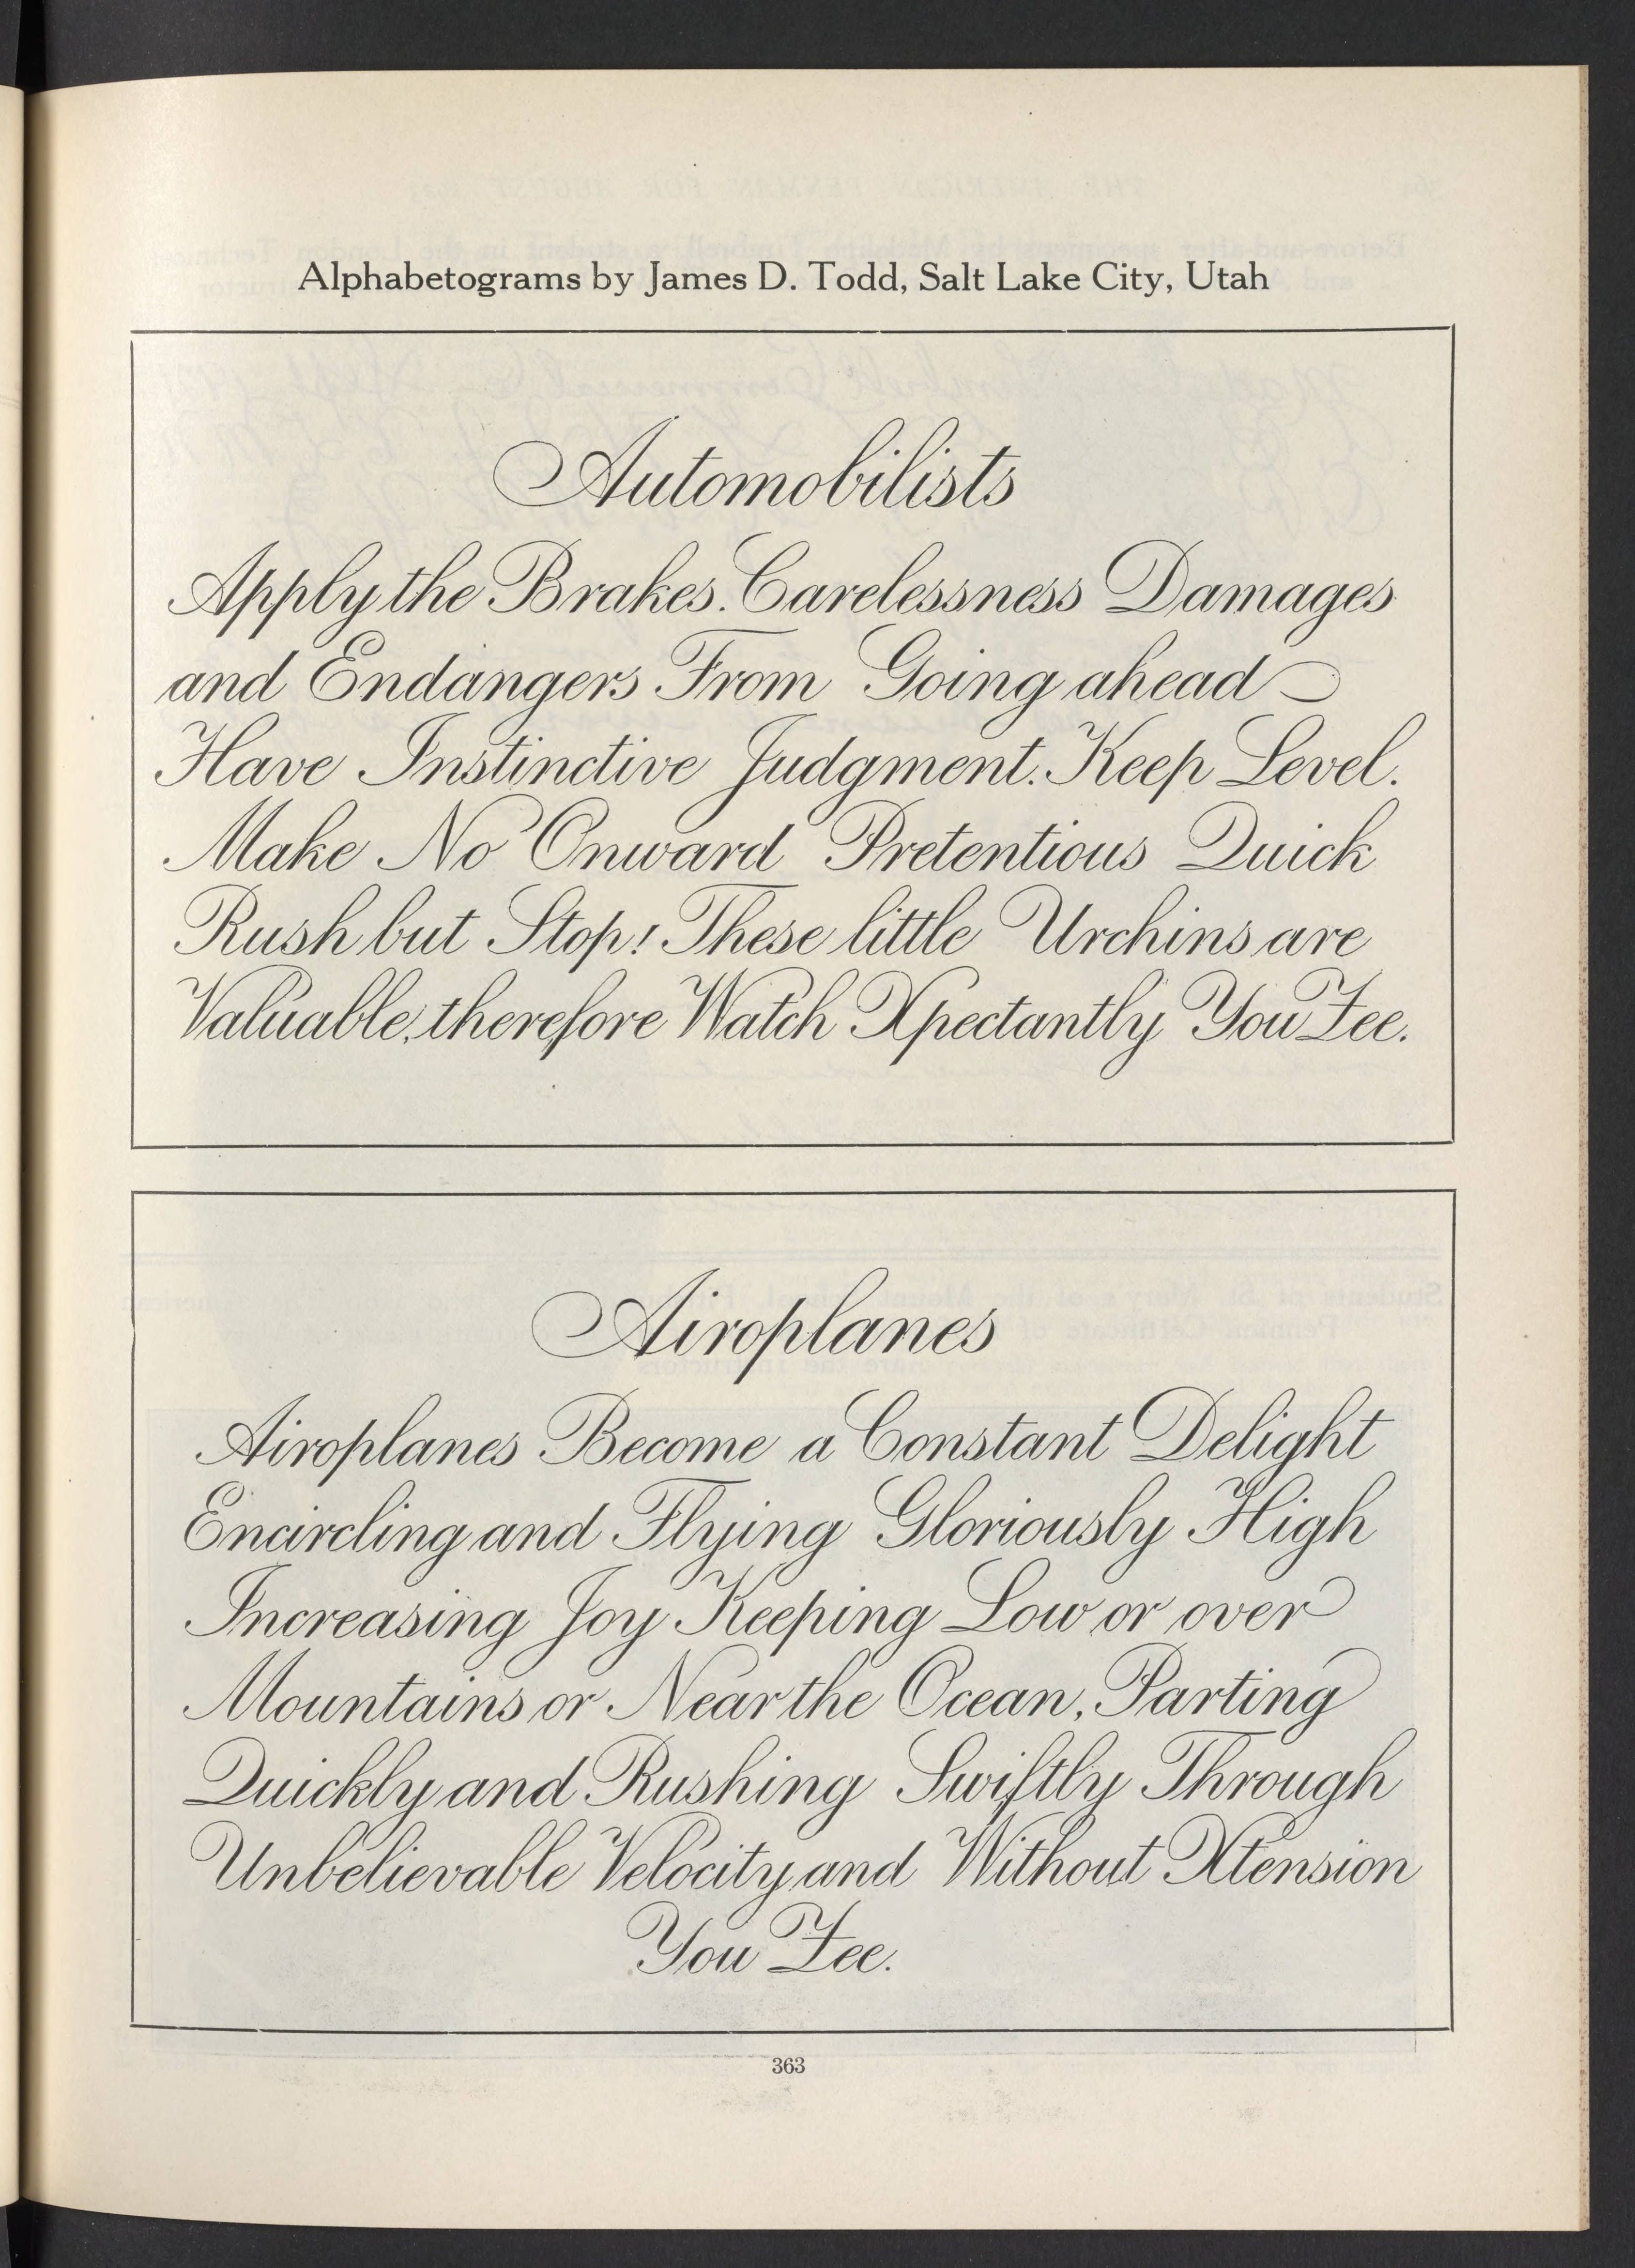 Alphabetograms by James D. Todd, Salt Lake City, Utah
Automobilists
Apply the Brakes. Carelessness Damages
and Endangers From Going ahead
Have Instinctive Judgment. Keep Level.
Make No Onward Pretentious Quick
Rush but Stop! These little Urchins are
Valuable, therefore Watch Xpectantly You Zee.
Airoplanes
Airoplanes Become a Constant Delight
Encircling and Flying Gloriously High
Increasing Joy Keeping Low or over
Mountains or Near the Ocean, Parting
Quickly and Rushing Swiftly Through
Unbelievable Velocity and Without Xtension
You Zee.
363